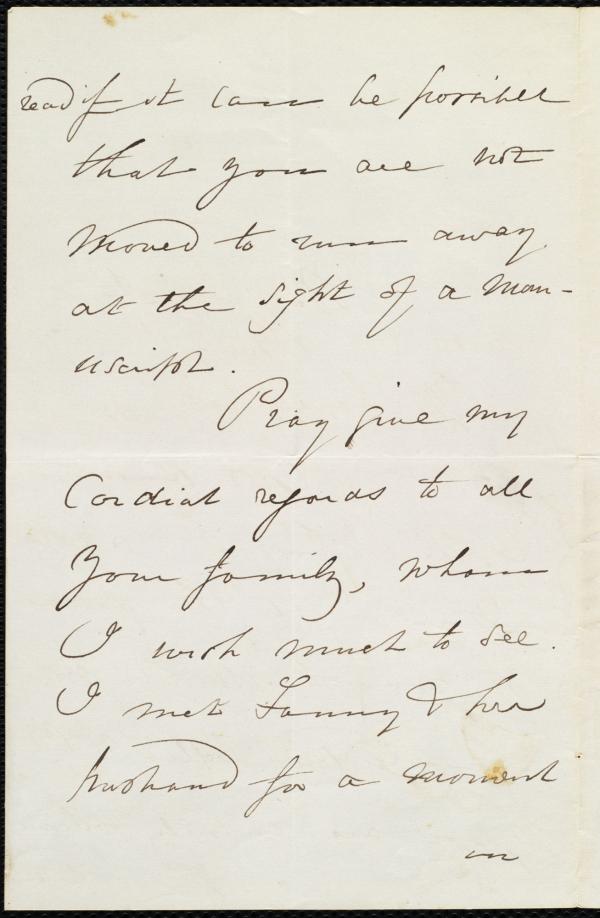 read if it can be possible
that you are not
moved to run away
at the sight of a man-
uscript.
Pray give my
Cordial regards to all
your family, whom
I wish much to see.
I met Fanny & her
husband for a moment
in